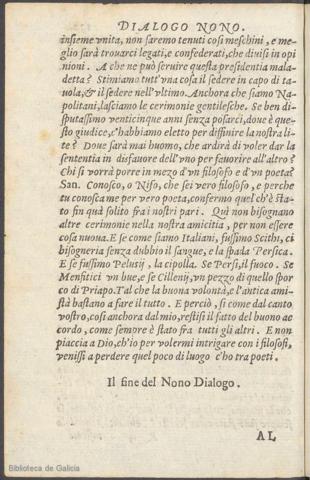 DIALOGO NONO.
insieme vnita, non saremo tenuti cosi meschini, e me-
glio sarà trouarci legati, e confederati, che diuisi in opi
nioni. A che ne può seruire questa presidentia mala-
detta? Stimiamo tutt'vna cosa il sedere in capo di ta-
uola, & il sedere nell'vltimo. Anchora che siamo Na-
politani, lasciamo le cerimonie gentilesche. Se ben di-
sputassimo venticinque anni senza posarci, doue è que-
sto giudice, c'habbiamo eletto per diffinire la nostra li-
te? Doue sarà mai huomo, che ardirà di voler dar la
sententia in disfauore dell'vno per fauorire all'altro?
Chi si vorrà porre in mezo d'vn filosofo e d'vn poeta?
San. Conosco, o Nifo, che sei vero filosofo, e perche
tu conosca me per vero poeta, confermo quel ch'è sta-
to fin quà solito frai nostri pari. Quì non bisognano
altre cerimonie nella nostra amicitia, per non essere
cosa nuoua. E se come siamo Italiani, fussimo Scithi, ci
bisogneria senza dubbio il sangue, e la spada Persica.
E se fussimo Pelutij, la cipolla. Se Persi, il fuoco. Se
Mensitici vn bue, e se Cillenij, vn pezzo di quello spor
co di Priapo. Tal che la buona volontà, e l'antica ami-
stà bastano a fare il tutto. E perciò, si come dal canto
vostro, cosi anchora dal mio, restisi il fatto del buono ac
cordo, come sempre è stato fra tutti gli altri. E non
piaccia a Dio, ch'io per volermi intrigare con i filosofi,
venissi a perdere quel poco di luogo c'ho tra poeti.
Il fine del Nono Dialogo.
AL
Biblioteca de Galicia